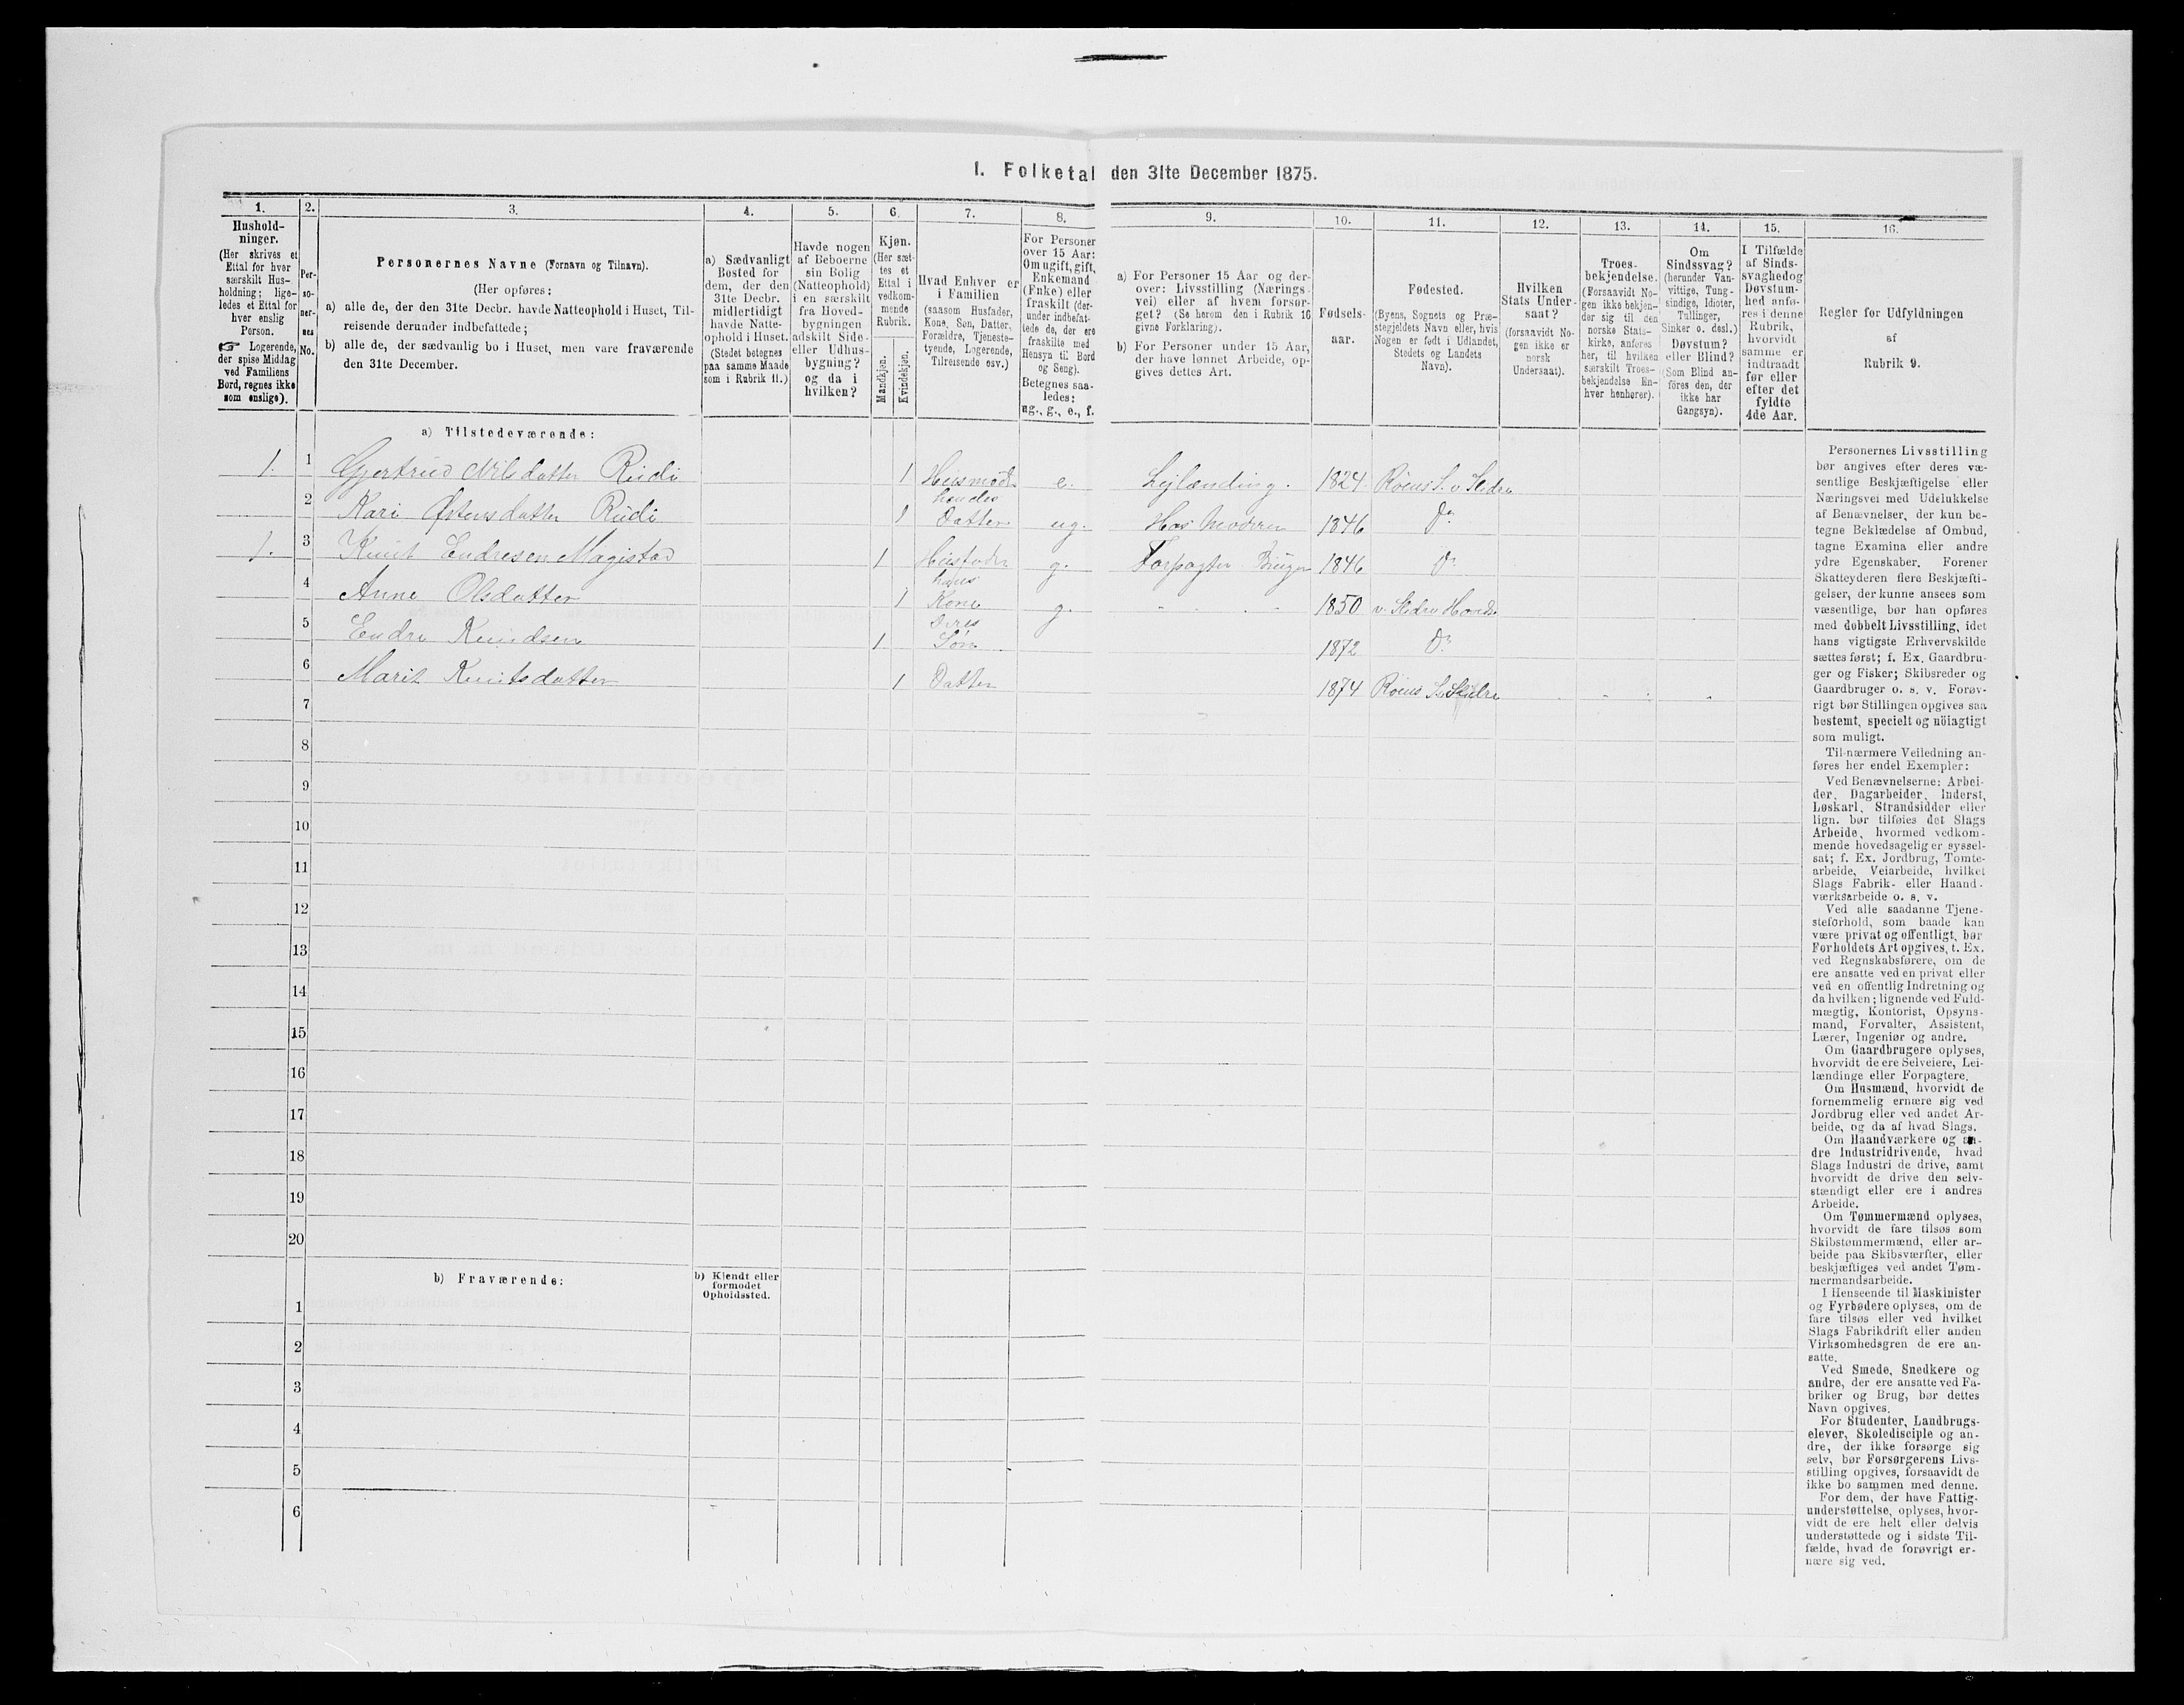 I. Folketal den 31te December 1875.
1. 2. 3. 4. 5. 6. 7. 8. 9. 10. 11. 12. 13. 14. 15. 16.
Hushold-
ninger.
(Her skrives et
Ettal for hver
særskilt Hus-
holdning; lige-
ledes et Ettal for
hver enslig
Person.
☞ Logerende,
der spise Middag
ved Familiens
Bord, regnes ikke
som enslige).
Per-
so-
ner-
nes
No.
Personernes Navne (Fornavn og Tilnavn).
(Her opføres:
a) alle de, der den 31te Decbr. havde Natteophold i Huset, Til-
reisende derunder indbefattede;
b) alle de, der sædvanlig bo i Huset, men vare fraværende
den 31te December.
a) Sædvanligt
Bosted for
dem, der den
31te Decbr.
midlertidigt
havde Natte-
ophold i Huset.
(Stedet betegnes
paa samme Maade
som i Rubrik 11.)
Havde nogen
af Beboerne
sin Bolig
(Natteophold)
i en særskilt
fra Hoved-
bygningen
adskilt Side-
eller Udhus-
bygning?
og da i
hvilken?
Kjøn.
(Her sæt-
tes et
Ettal i
vedkom-
mende
Rubrik.
Mandkjøn.
Kvindekjøn.
Hvad Enhver er
i Familien
(saasom Husfader,
Kone, Søn, Datter,
Forældre, Tjeneste-
tyende, Logerende,
Tilreisende osv.)
For Personer
over 15 Aar:
Om ugift, gift,
Enkemand
(Enke) eller
fraskilt (der-
under indbefat-
tede de, der ere
fraskilte med
Hensyn til Bord
og Seng).
Betegnes saa-
ledes:
ug., g., e., f.
a) For Personer 15 Aar og der-
over: Livsstilling (Nærings-
vei) eller af hvem forsør-
get? (Se herom den i Rubrik 16
givne Forklaring).
b) For Personer under 15 Aar,
der have lønnet Arbeide, op-
gives dettes Art.
Fødsels-
aar.
Fødested.
(Byens, Sognets og Præ-
stegjeldets Navn eller, hvis
Nogen er født i Udlandet,
Stedets og Landets
Navn).
Hvilken
Stats Under-
saat?
(forsaavidt No-
gen ikke er
norsk
Undersaat).
Troes-
bekjendelse.
(Forsaavidt No-
gen ikke bekjen-
der sig til den
norske Stats-
kirke, anføres
her, til hvilken
særskilt Troes-
bekjendelse En-
hver henhører).
Om
Sindssvag?
(herunder Van-
vittige, Tung-
sindige, Idioter,
Tullinger,
Sinker o. desl.)
Døvstum?
eller Blind?
(Som Blind an-
føres den, der
ikke har
Gangsyn).
I Tilfælde
af Sinds-
svaghed og
Døvstum-
hed anfø-
res i denne
Rubrik,
hvorvidt
samme er
indtraadt
før eller
efter det
fyldte
4de Aar.
Regler for Udfyldningen
af
Rubrik 9.
a) Tilstedeværende:
1. 1 Gjertrud Nilsdatter Rudi 1 Husmodr e. Lejlænding. 1824 Røens S. v Slidre
2 Kari Østensdatter Rudi 1 hendes Datter ug. Hos Moderen 1846 Do
1. 3 Knut Endresen Magistad 1 Husfader g. Forpagter Bruger 1846 Do
4 Anne Olsdatter 1 hans Kone g. 1850 v. Slidre Hoveds
5 Endre Knudsen 1 Deres Søn 1872 Do
6 Marit Knutsdatter 1 Datter 1874 Røens S. Slidre
7
8
9
10
11
12
13
14
15
16
17
18
19
20
b) Fraværende:
b) Kjendt eller
formodet
Opholdssted.
1
2
3
4
5
6
Personernes Livsstilling
bør angives efter deres væ-
sentlige Beskjæftigelse eller
Næringsvei med Udelukkelse
af Benævnelser, der kun be-
tegne Beklædelse af Ombud,
tagne Examina eller andre
ydre Egenskaber. Forener
Skatteyderen flere Beskjæfti-
gelser, der kunne ansees som
væsentlige, bør han opføres
med dobbelt Livsstilling, idet
hans vigtigste Erhvervskilde
sættes først; f. Ex. Gaardbru-
ger og Fisker; Skibsreder og
Gaardbruger o. s. v. Forøv-
rigt bør Stillingen opgives saa
bestemt, specielt og nöiagtigt
som muligt.
Til nærmere Veiledning an-
føres her endel Exempler:
Ved Benævnelserne: Arbei-
der, Dagarbeider, Inderst,
Løskarl, Strandsidder eller
lign. bør tilføies det Slags
Arbeide, hvormed vedkom-
mende hovedsagelig er syssel-
sat; f. Ex. Jordbrug, Tomte-
arbeide, Veiarbeide, hvilket
Slags Fabrik- eller Haand-
værksarbeide o. s. v.
Ved alle saadanne Tjene-
steforhold, som baade kan
være privat og offentligt, bør
Forholdets Art opgives, t. Ex.
ved Regnskabsførere, om de
ere ansatte ved en privat eller
ved en offentlig Indretning og
da hvilken; lignende ved Fuld-
mægtig, Kontorist, Opsyns-
mand, Forvalter, Assistent,
Lærer, Ingeniør og andre.
Om Gaardbrugere oplyses,
hvorvidt de ere Selveiere, Lei-
lændinge eller Forpagtere.
Om Husmænd, hvorvidt de
fornemmelig ernære sig ved
Jordbrug eller ved andet Ar-
beide, og da af hvad Slags.
Om Haandværkere og an-
dre Industridrivende, hvad
Slags Industri de drive, samt
hvorvidt de drive den selv-
stændigt eller ere i andres
Arbeide.
Om Tømmermænd oplyses,
hvorvidt de fare tilsøs som
Skibstømmermænd, eller ar-
beide paa Skibsværfter, eller
beskjæftiges ved andet Tøm-
mermandsarbeide.
I Henseende til Maskinister
og Fyrbødere oplyses, om de
fare tilsøs eller ved hvilket
Slags Fabrikdrift eller anden
Virksomhedsgren de ere an-
satte.
Ved Smede, Snedkere og
andre, der ere ansatte ved Fa-
briker og Brug, bør dettes
Navn opgives.
For Studenter, Landbrugs-
elever, Skoledisciple og an-
dre, der ikke forsørge sig
selv, bør Forsørgerens Livs-
stilling opgives, forsaavidt de
ikke bo sammen med denne.
For dem, der have Fattig-
understøttelse, oplyses, hvor-
vidt de ere helt eller delvis
understøttede og i sidste Til-
fælde, hvad de forøvrigt er-
nære sig ved.